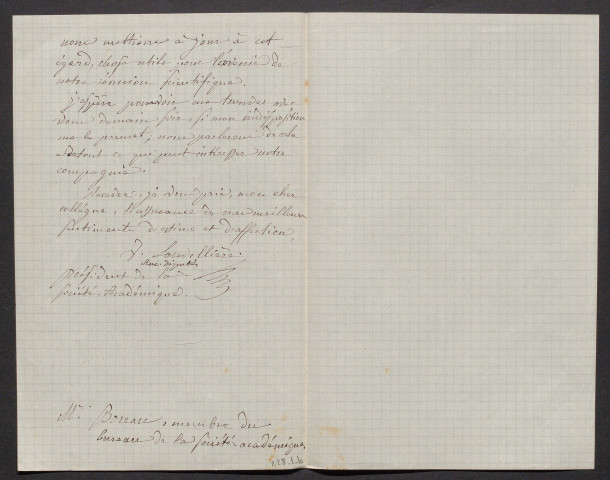 nous mettions à jour à cet
égard, chose utile pour l'avenir de
notre réunion scientifique.
J'espère pouvoir me rendre avec
vous demain soir, si mon indisposition
me le permet, nous parlerons de cela
et de tout ce qui peut intéresser notre
compagnie.
Recevez, je vous prie, mon cher
collègue, l'assurance de mes meilleurs
sentiments d'estime et d'affection,
président de la
société Académique.
Mr. Boreau, membre du
bureau de la société académique
228.1.6